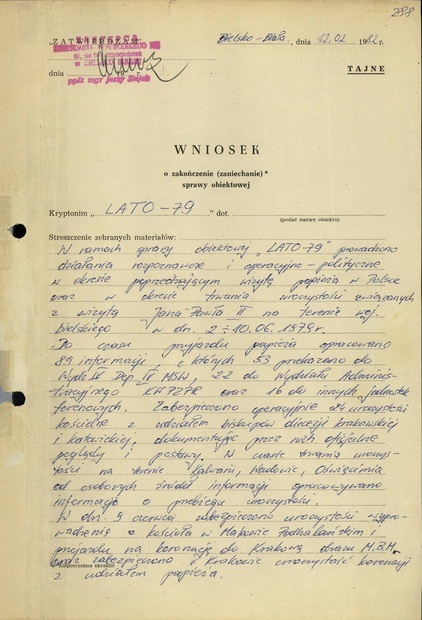 288
ZATWIERDZAM
Bielsko-Biała, dnia 12.02 1982 r.
dnia
TAJNE
ppłk mgr Jerzy
WNIOSEK
o zakończenie (zaniechanie)*
sprawy obiektowej
Kryptonim „LATO-79" dot.
(podać nazwę obiektu)
Streszczenie zebranych materiałów:
W ramach sprawy obiektowej „LATO-79" prowadzono
działania rozpoznawcze i operacyjno-polityczne
w okresie poprzedzającym wizytę papieża w Polsce
oraz w okresie trwania uroczystości związanych
z wizytą Jana Pawła II na terenie woj.
bielskiego w dn. 2÷10.06.1979r.
Do czasu przyjazdu papieża opracowano
89 informacji, z których 53 przekazano do
Wydz. IV Dep. IV MSW, 22 do Wydziału Adminis-
tracyjnego KW PZPR oraz 16 do innych jednostek
terenowych. Zabezpieczono operacyjnie 24 uroczystości
kościelne z udziałem biskupów diecezji krakowskiej
i katowickiej, dokumentując przez nich oficjalne
poglądy i postawy. W czasie trwania uroczys-
tości na terenie Kalwarii, Wadowic, Oświęcimia
od osobowych źródeł informacji opracowywano
informacje o przebiegu uroczystości.
W dn. 9 czerwca zabezpieczono uroczystość wypro-
wadzenia z kościoła w Makowie Podhalańskim i
przyjazdu na koronację do Krakowa obrazu M.B.M.
oraz zabezpieczono w Krakowie uroczystość koronacji
z udziałem papieża.
niepotrzebne skreślić